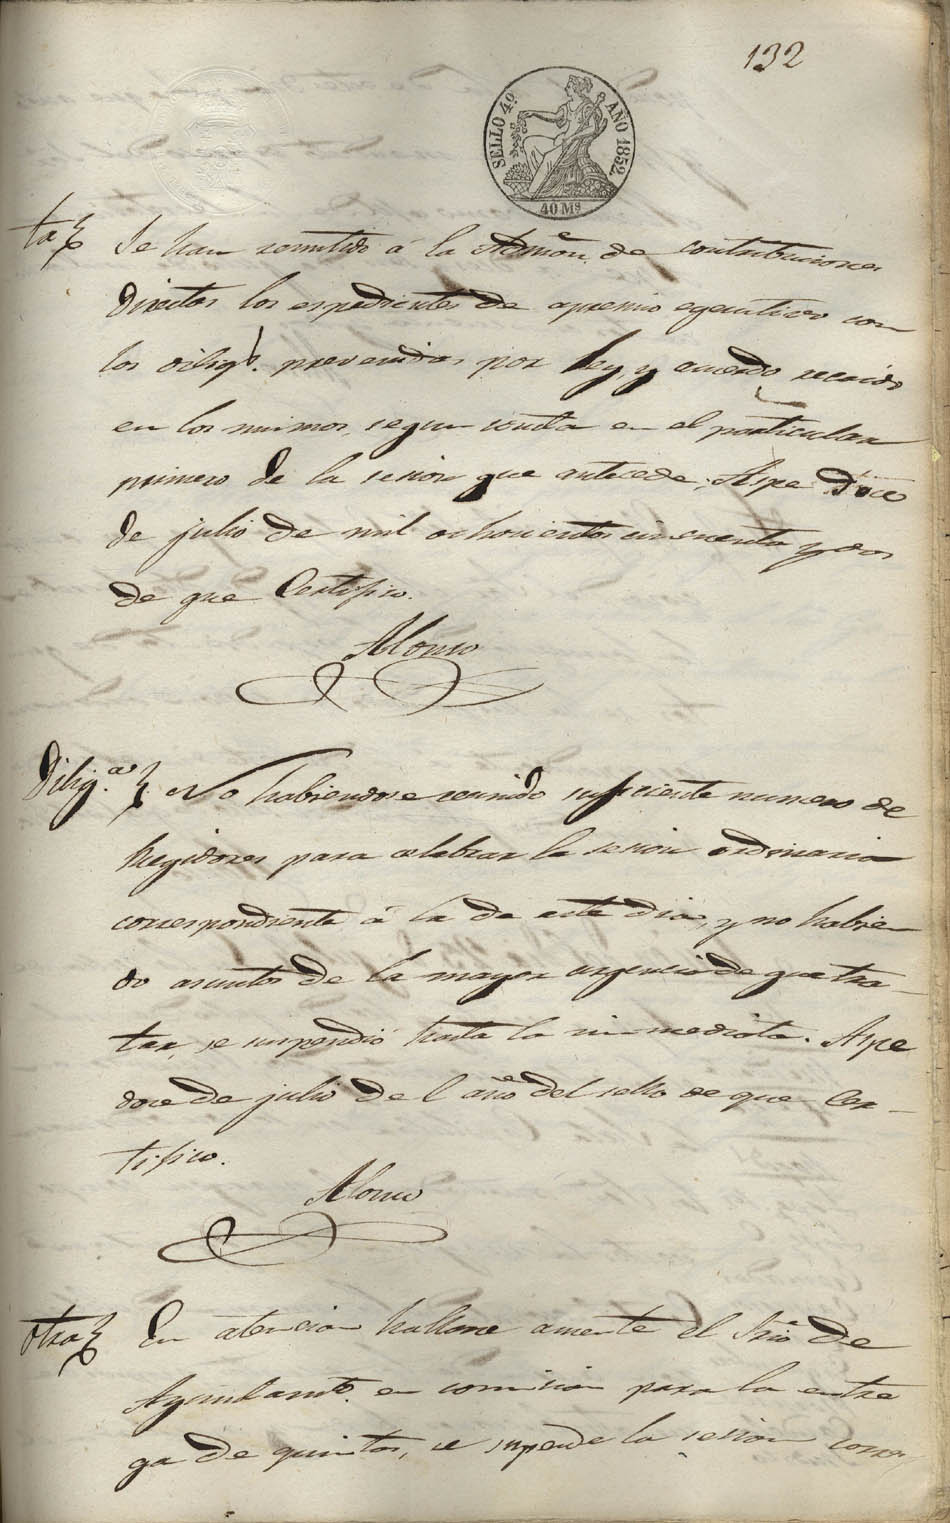 132
SELLO 4º AÑO 1852.
40 Ms
ta
Se han remitido á la Admon. de contribuciones
directas los espedientes de apremio egecutivo con
los diligs. prevenidas por ley, y acuerdo recaido
en los mismos, segun consta en el particular
primero de la sesion que antecede. Aspe doce
de julio de mil ochocientos cincuenta y dos
de que Certifico.
Alonso
Diliga. No habiendose reunido suficiente numero de
Regidores para celebrar la sesion ordinaria
correspondiente á la de este dia, y no habien
do asuntos de la mayor urgencia de que tra-
tar, se suspendió hasta la inmediata. Aspe
doce de julio del año del sello de que Cer-
tifico.
Alonso
Otra En atencion hallarse ausente el Srio. de
Ayuntamto. en comision para la entre
ga de quintos, se suspende la sesion corres